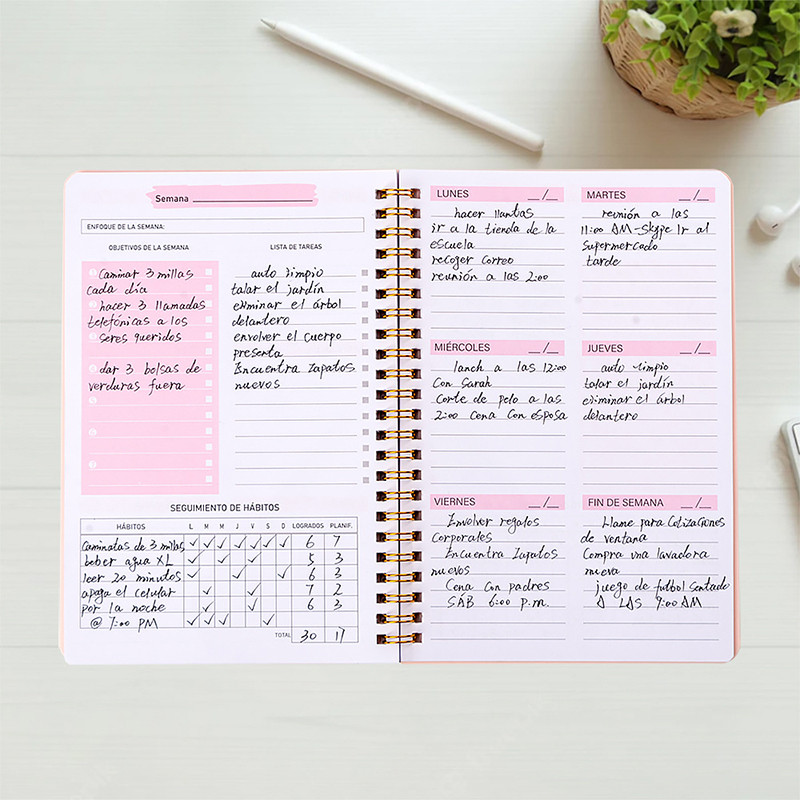 Semana
ENFOQUE DE LA SEMANA:
OBJETIVOS DE LA SEMANA
Caminar 3 millas
cada día
hacer 3 llamadas
telefónicas a los
seres queridos
dar 3 bolsas de
verduras fuera
LISTA DE TAREAS
auto limpio
talar el jardín
eliminar el árbol
delantero
envolver el cuerpo
presenta
Encuentra Zapatos
nuevos
SEGUIMIENTO DE HÁBITOS
HÁBITOS L M M J V S D LOGRADOS PLANIF.
Caminatas de 3 millas ✓ ✓ ✓ ✓ ✓ ✓ ✓ 6 7
beber agua XL ✓ ✓ ✓ 5 3
leer 20 minutos ✓ ✓ ✓ 6 3
apaga el celular ✓ ✓ 7 2
por la noche ✓ ✓ 6 3
@ 7:00 PM ✓ ✓ ✓ ✓
TOTAL 30 17
LUNES __/__
hacer llantas
ir a la tienda de la
escuela
recoger correo
reunión a las 2:00
MARTES __/__
reunión a las
11:00 AM-Skype Ir al
supermercado
tarde
MIÉRCOLES __/__
lanch a las 12:00
Con Sarah
Corte de pelo a las
2:00 Cena Con esposa
JUEVES __/__
auto limpio
talar el jardín
eliminar el árbol
delantero
VIERNES __/__
Envolver regalos
Corporates
Encuentra Zapatos
nuevos
Cena Con padres
SAB 6:00 p.m.
FIN DE SEMANA __/__
Llame para Cotizaciones
de ventana
Compra una lavadora
nueva
juego de futbol Sentado
A LAS 9:00 AM